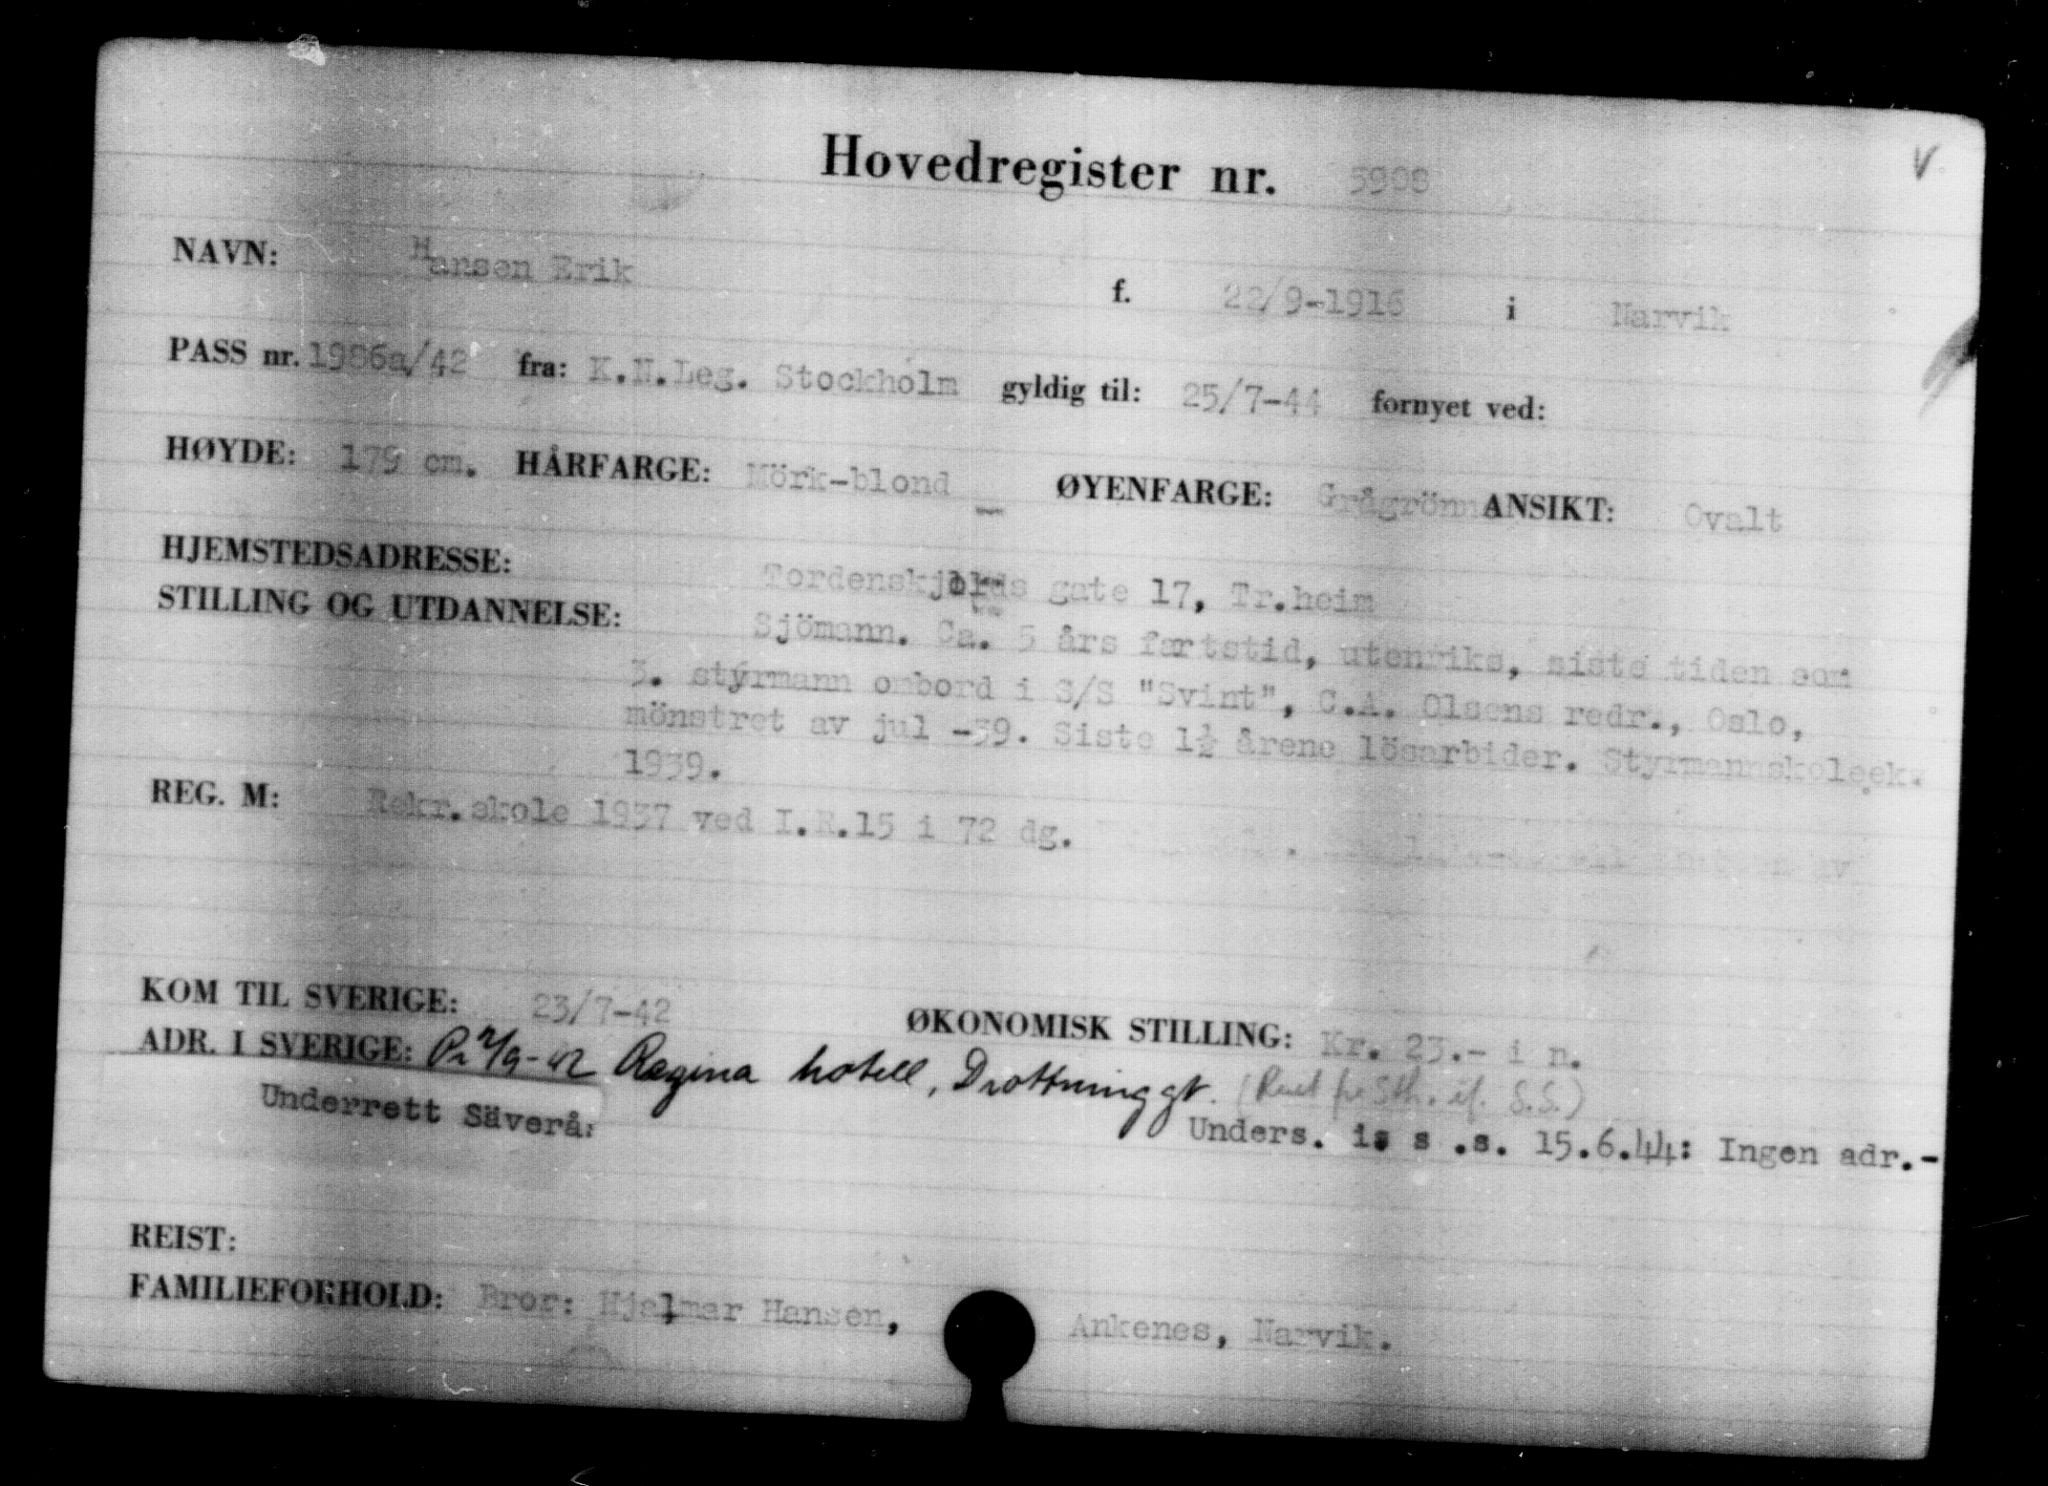 Hovedregister nr. 5988 V.
NAVN: Hansen Erik f. 22/9-1916 i Narvik
PASS nr. 1986a/42 fra: K.N.Leg. Stockholm gyldig til: 25/7-44 fornyet ved:
HØYDE: 179 cm. HÅRFARGE: Mörk-blond ØYENFARGE: Grågrönn ANSIKT: Ovalt
HJEMSTEDSADRESSE: Tordenskjolds gate 17, Tr.heim
STILLING OG UTDANNELSE: Sjömann. Ca. 5 års fartstid, utenriks, siste tiden som
3. styrmann ombord i S/S "Svint", C.A. Olsens redr., Oslo,
mönstret av jul -39. Siste 1½ årene lösarbider. Styrmannskoleek.
1939.
REG. M: Rekr.skole 1937 ved I.R.15 i 72 dg.
KOM TIL SVERIGE: 23/7-42 ØKONOMISK STILLING: Kr. 23.- i n.
ADR. I SVERIGE: Pr 2/9-42 Regina hotell, Drottninggt. (Reist fr Sth. if. S.S.)
Underrett Säverå: Unders. i. s .s. 15.6.44: Ingen adr.-
REIST:
FAMILIEFORHOLD: Bror: Hjalmar Hansen, Ankenes, Narvik.